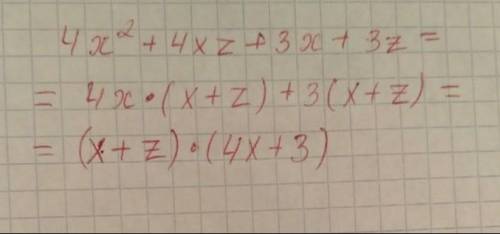 4x² + 4xz + 3x + 3z =
= 4x·(x+z) + 3(x+z) =
= (x+z)·(4x+3)